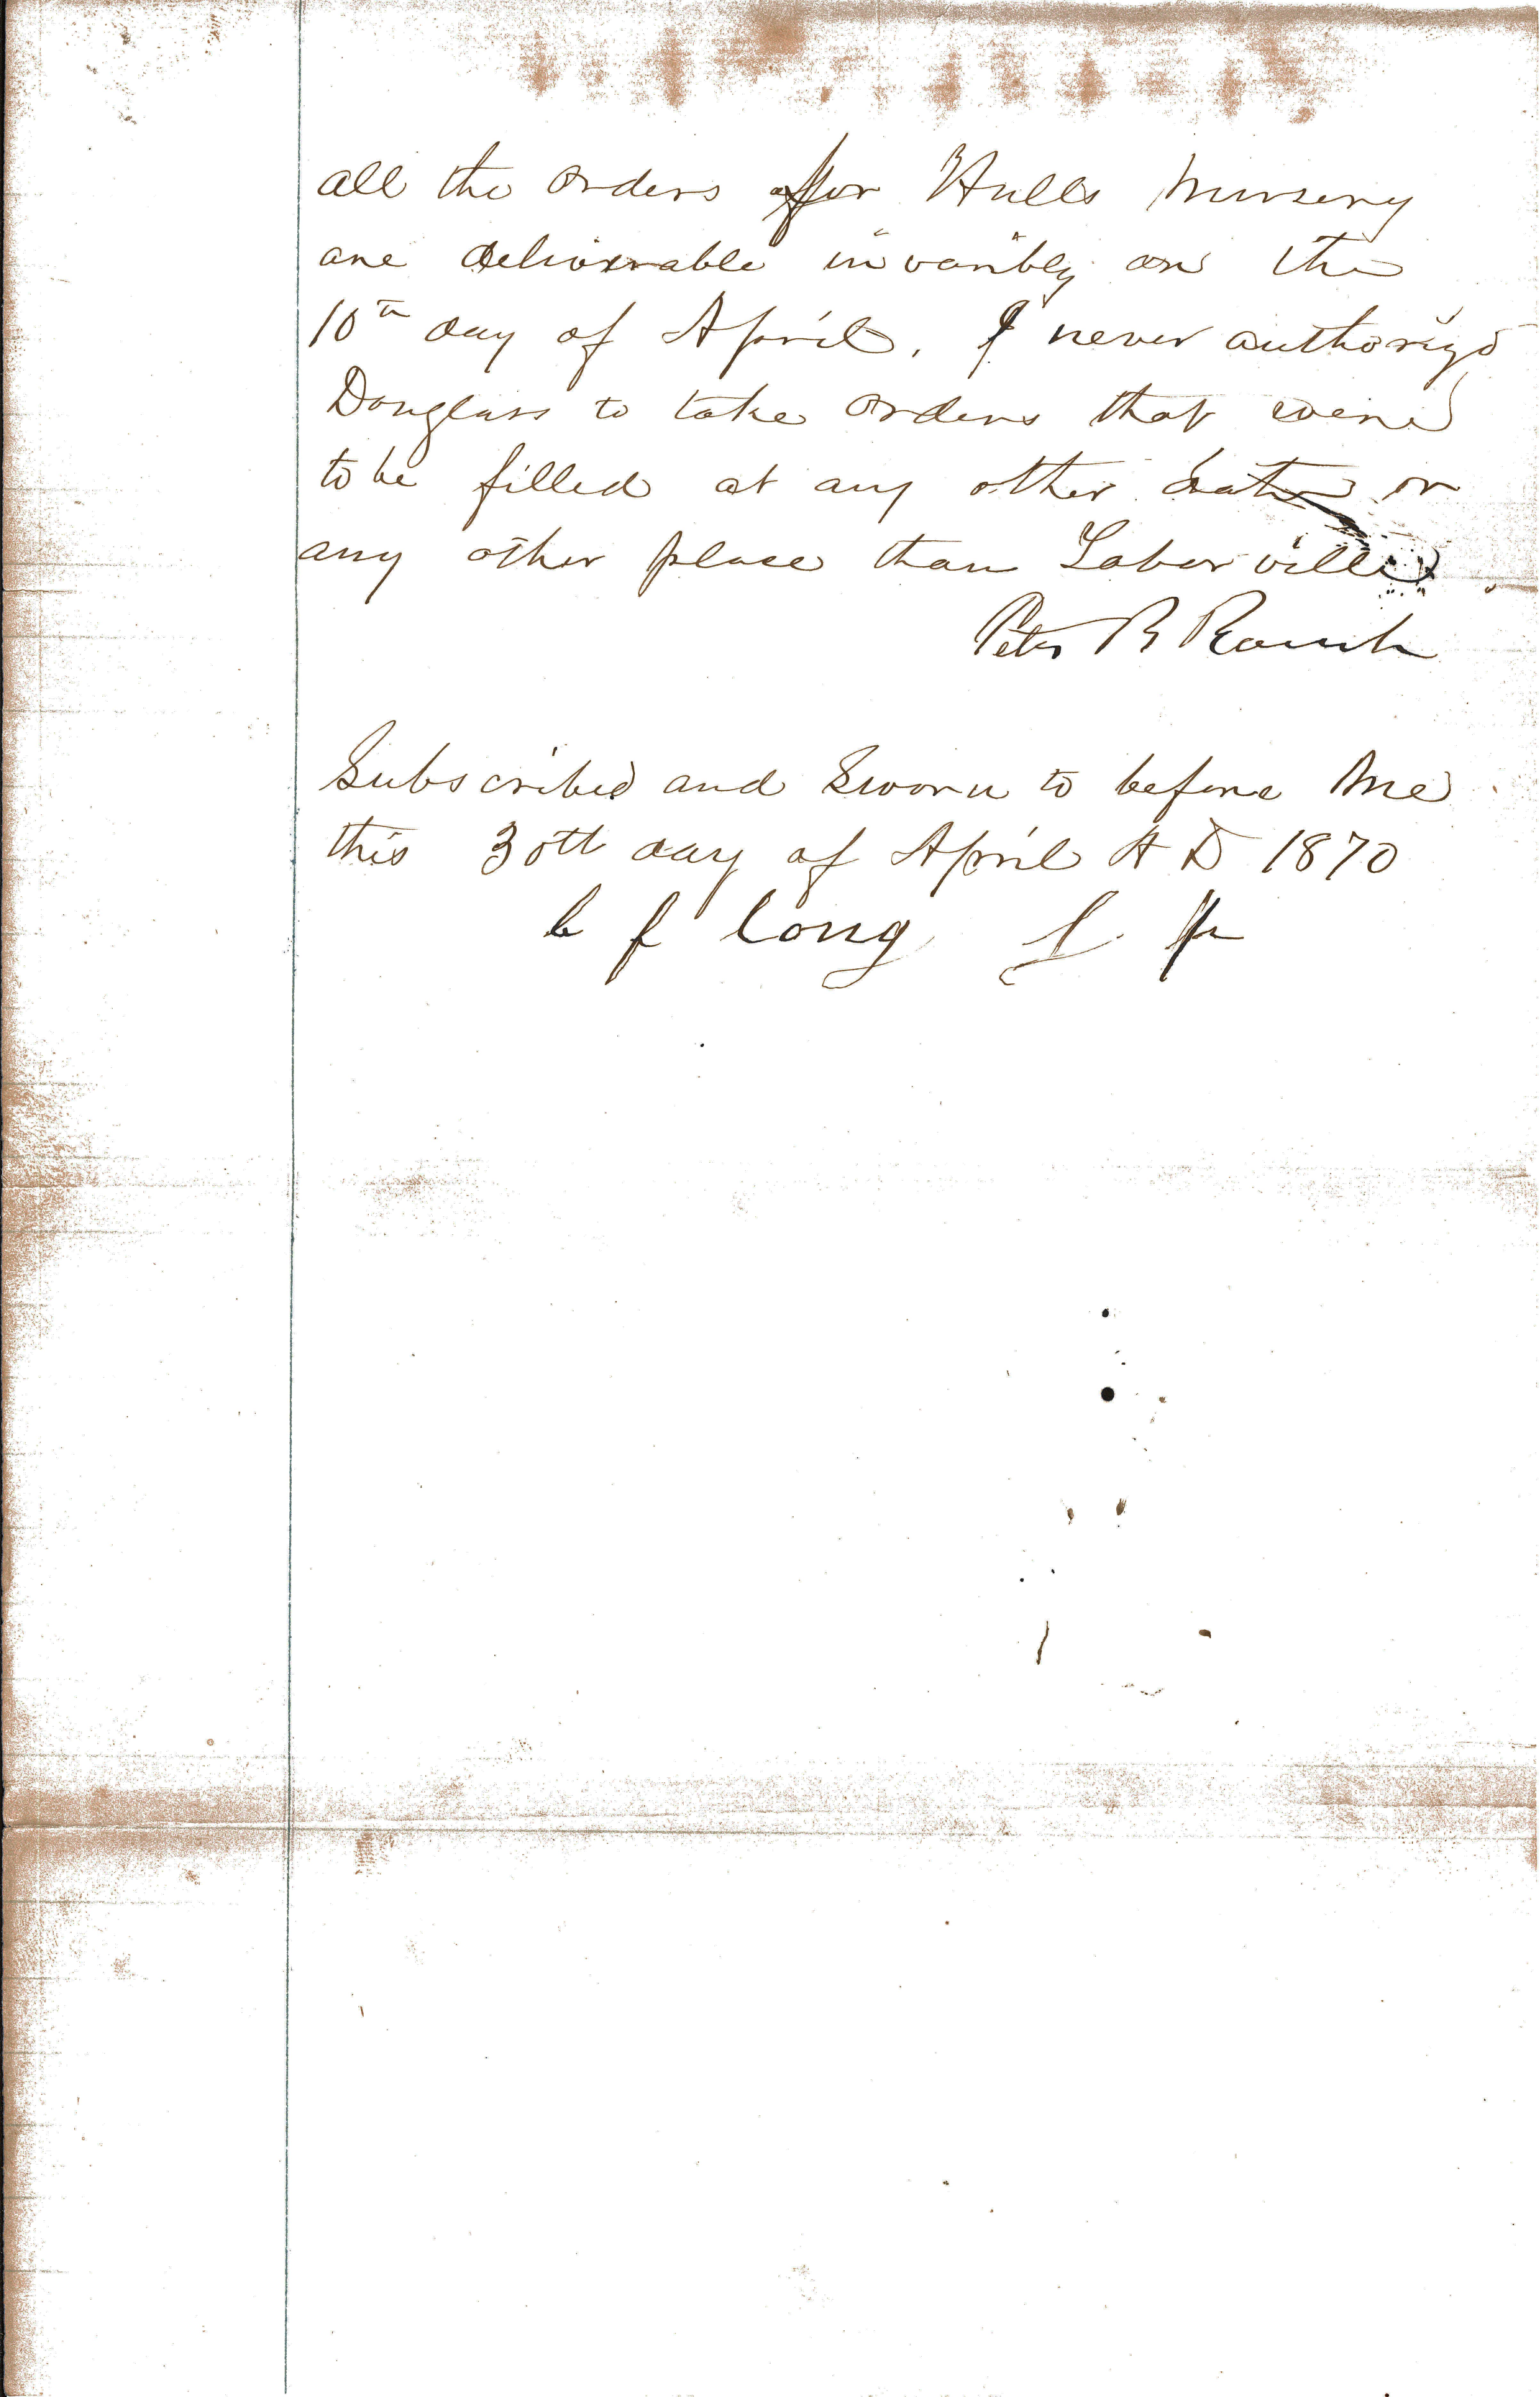 all the orders for Hulls Nursery
are deliverable invaribly on the
10th day of April. I never authorized
Douglass to take orders that were
to be filled at any other date or
any other place than Laborville
Peter B Rauch
Subscribed and Sworn to before me
this 30th day of April A D 1870
C F Long